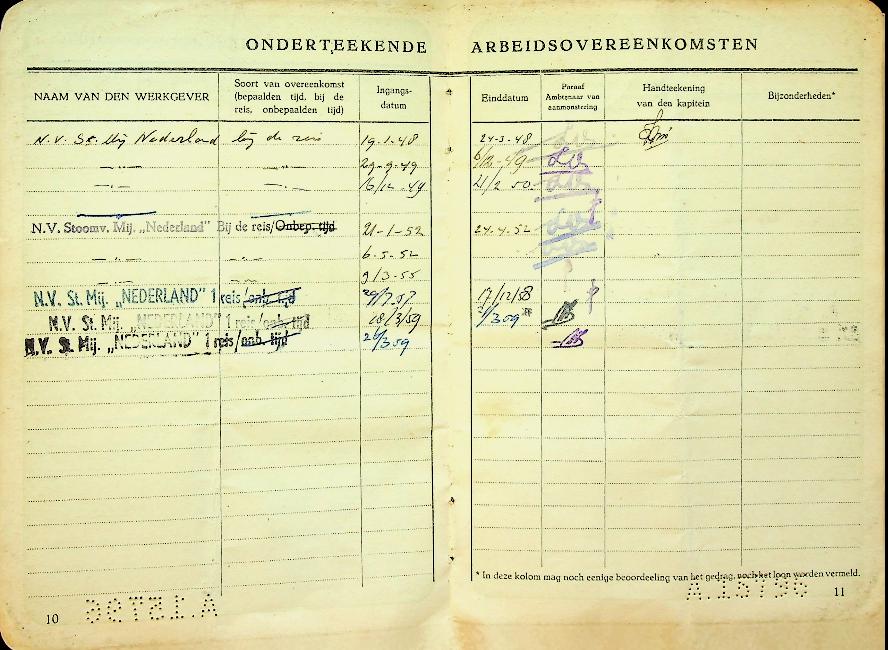 ONDERTEEKENDE ARBEIDSOVEREENKOMSTEN
NAAM VAN DEN WERKGEVER
Soort van overeenkomst
(bepaalden tijd, bij de
reis, onbepaalden tijd)
Ingangs-
datum
Einddatum
Paraaf
Ambtenaar van
aanmonstering
Handteekening
van den kapitein
Bijzonderheden*
N.V. St. Mij Nederland bij de reis 19-1-48 24-3-48
—„— —„— 29-9-49
—„— —„— 16/12-49 21/2 50
N.V. Stoomv. Mij. „Nederland" Bij de reis/Onbep. tijd 21-1-52 24-4-52
—„— —„— 6-5-52
—„— —„— 9/3-55
N.V. St. Mij. „NEDERLAND" 1 reis/onb. tijd 17/12/58
N.V. St. Mij. „NEDERLAND" 1 reis/onb. tijd 18/3/59
N.V. St. Mij. „NEDERLAND" 1 reis/onb. tijd
* In deze kolom mag noch eenige beoordeeling van het gedrag, noch het loon worden vermeld.
10
A.15796
A.15796
11